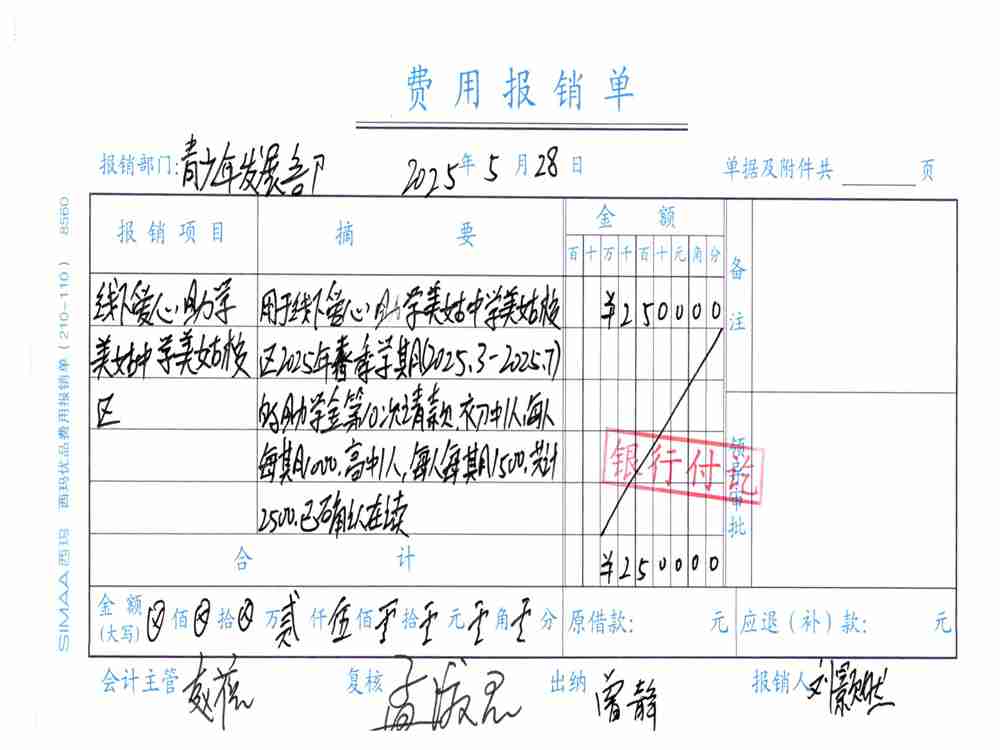 费用报销单
报销部门:青少年发展部 2025年5月28日 单据及附件共 页
报销项目 摘要 金额 备注
百十万千百十元角分
线下爱心助学 用于线下爱心助学美姑中学美姑校 ¥250000
美姑中学美姑校 区2025年春季学期(2025.3-2025.7)
区 的助学金第10次请款,初中1人,每人
每期1000,高中1人,每人每期1500,共计
2500,已确认在续
银行付讫
领导审批
合计 ¥250000
金额(大写) ⊗佰⊗拾⊗万贰仟伍佰零拾零元零角零分 原借款: 元 应退(补)款: 元
会计主管 复核 出纳 曾静 报销人 刘颢然
SIMAA西玛 西玛优品费用报销单(210-110) 8560